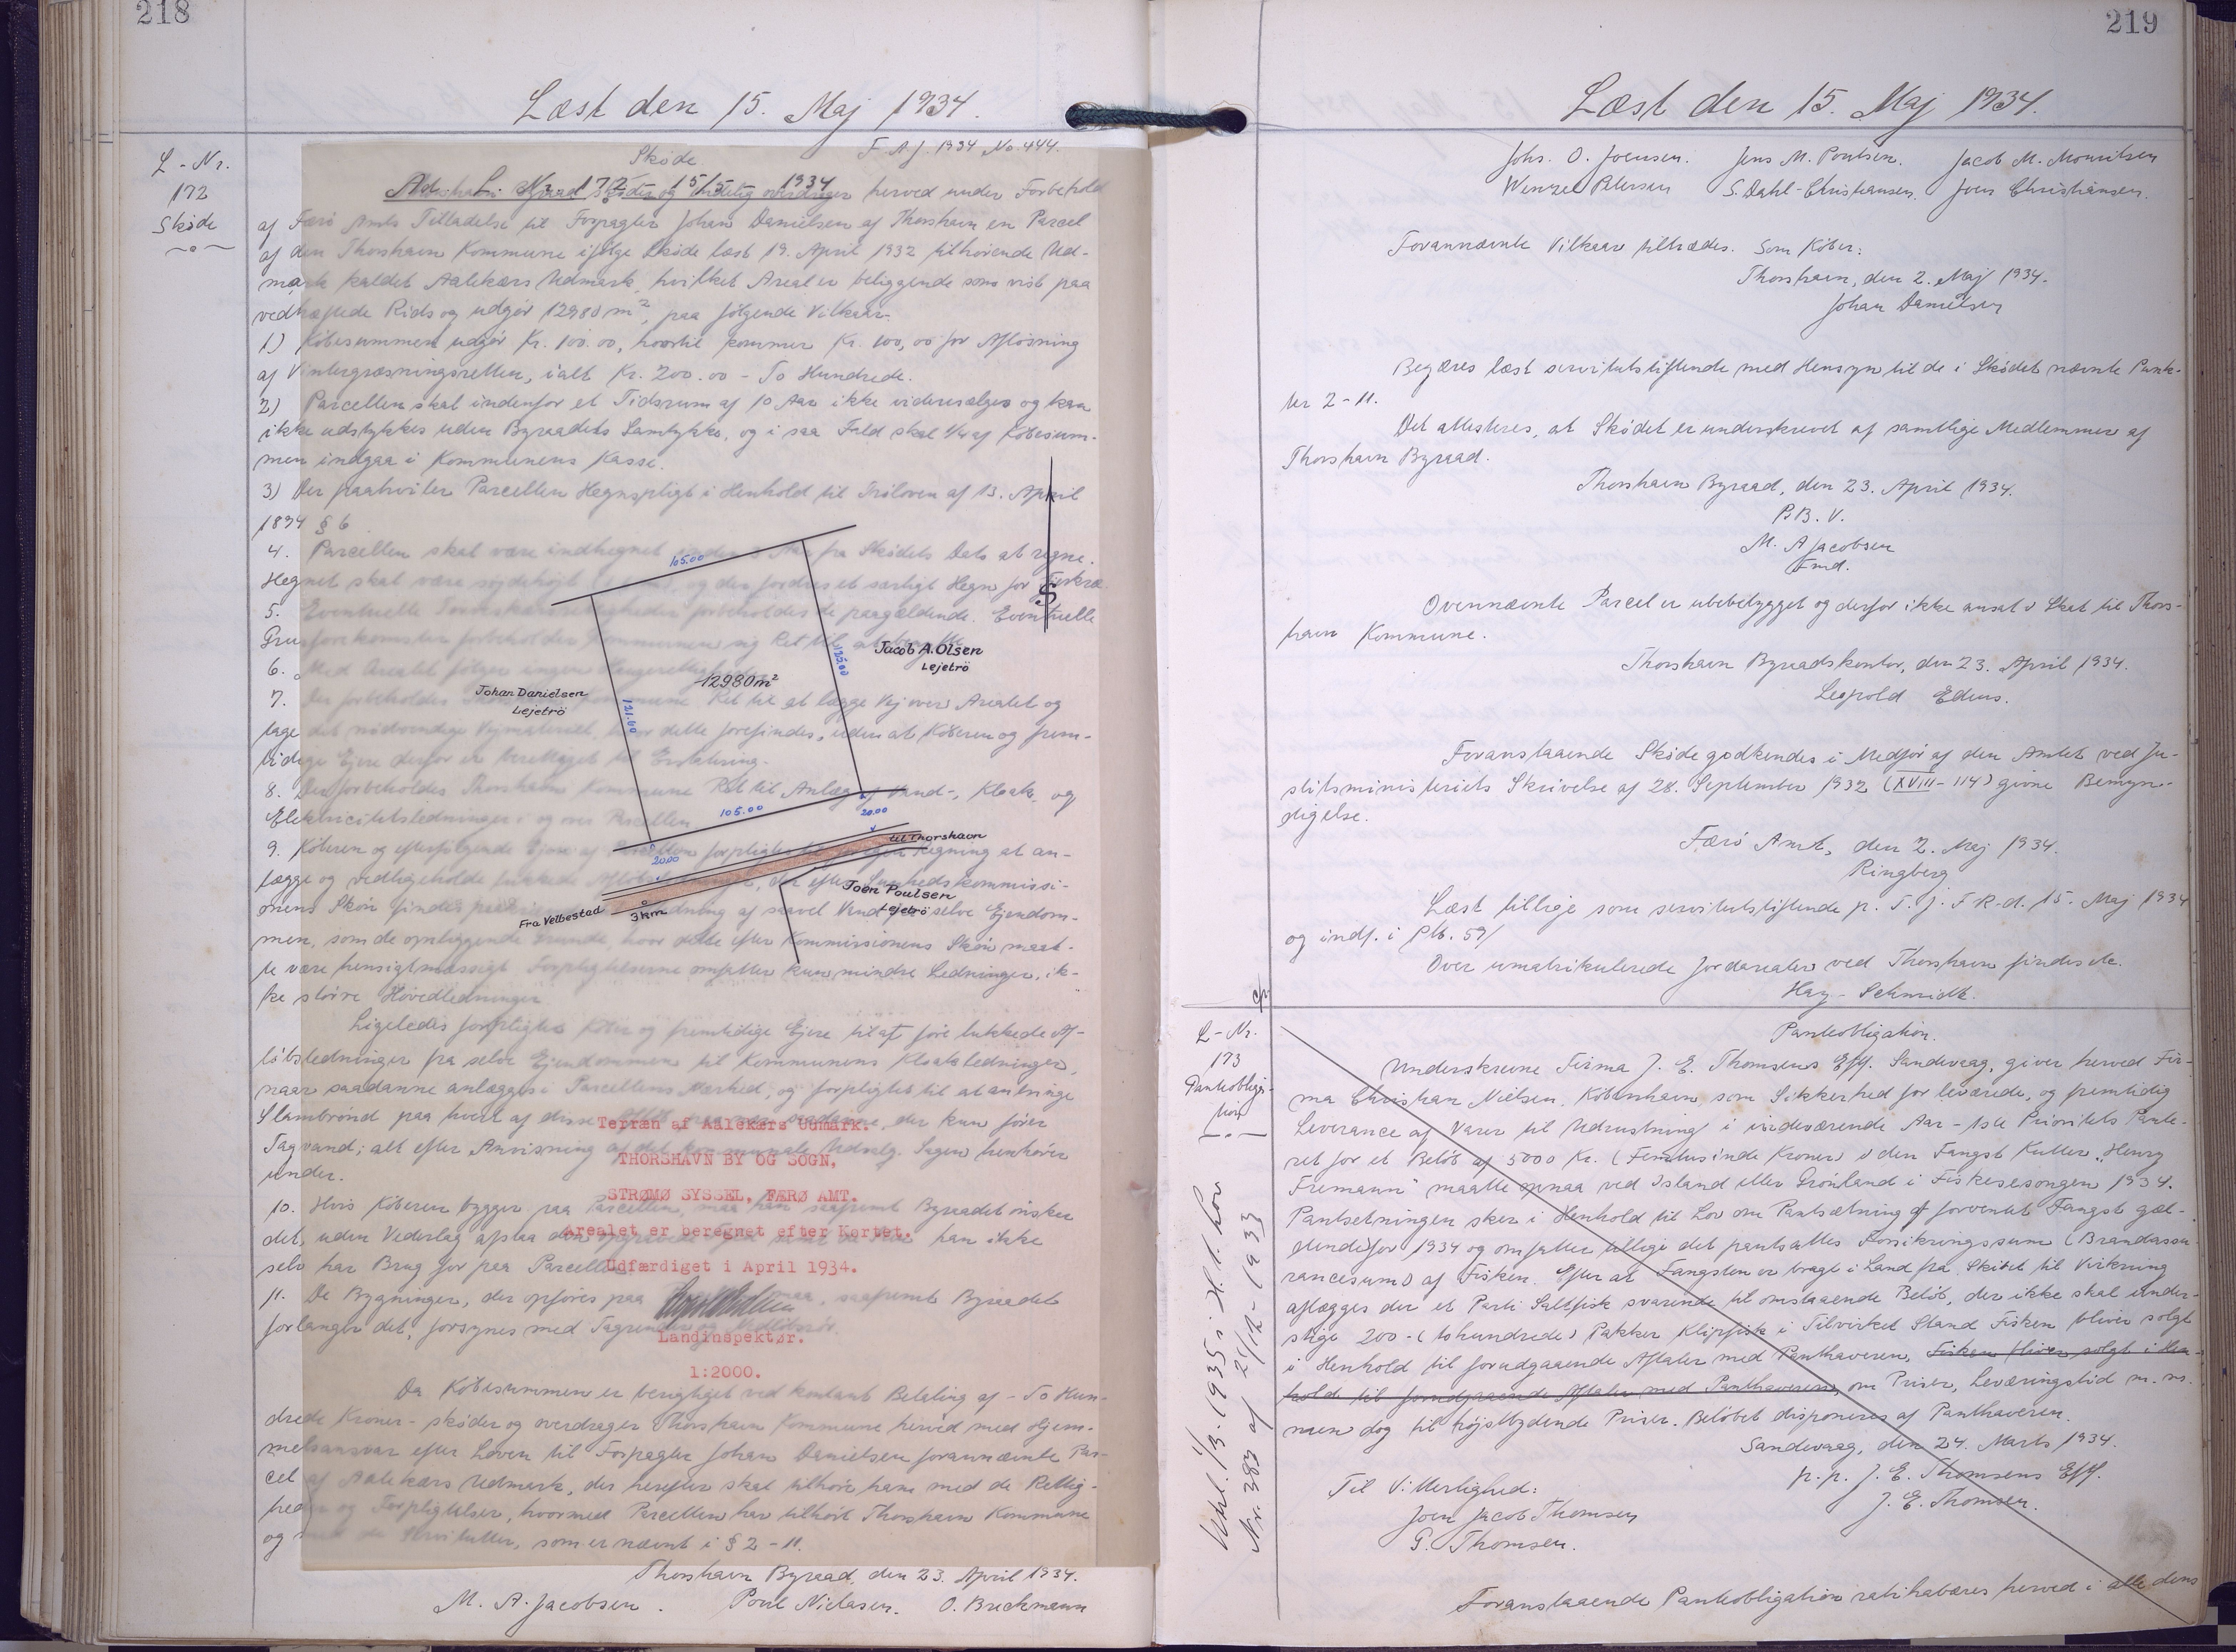 218
Læst den 15. Maj 1934.
L-Nr.
172
Skøde
F. A. J. 1934 No. 444.
Skøde
L. Nr. 172 15/5 1934
skøder og endelig overdrager herved under Forbehold
af Færø Amts Tilladelse til Forpagter Johan Danielsen af Thorshavn en Parcel
af den Thorshavn Kommune ifølge Skøde læst 19. April 1932 tilhørende Ud-
mark kaldet Aalekærs Udmark, hvilket Areal er beliggende som vist paa
vedhæftede Rids og udgør 12980 m², paa følgende Vilkaar:
1) Købesummen udgør Kr. 100.00, hvortil kommer Kr. 100,00 for Afløsning
af Vintergræsningsretten, ialt Kr. 200.00 - To Hundrede.
2) Parcellen skal indenfor et Tidsrum af 10 Aar ikke videresælges og kan
ikke udstykkes uden Byraadets Samtykke, og i saa Fald skal 1/4 af Købesum-
men indgaa i Kommunens Kasse.
3) Der paahviler Parcellen Hegnspligt i Henhold til Friloven af 13. April
1894 § 6
4. Parcellen skal være indhegnet fra Skødets Dato at regne.
Hegnet skal være og der fordres et særligt Hegn for Fjerkræ.
5. Eventuelle forbeholdes de paagældende. Eventuelle
Grusforekomster forbeholder Kommunen sig Ret til
6. Med Arealet følger ingen
7. Der forbeholdes Kommune Ret til at lægge Vej over Arealet og
tage det nødvendige Vejmateriel, hvor dette forefindes, uden at Køberen og frem-
tidige Ejere derfor er berettiget til Erstatning.
8. Der forbeholdes Thorshavn Kommune Ret til Anlæg af Vand-, Kloak og
Elektricitetsledninger i og over Parcellen
9. Køberen og efterfølgende Ejere af Parcellen forpligtes til for egen Regning at an-
lægge og vedligeholde lukkede der efter Sundhedskommissi-
onens Skøn findes af saavel Vand fra selve Ejendom-
men, som de omliggende Grunde, hvor dette efter Kommissionens Skøn maat-
te være hensigtsmæssigt. Forpligtelserne omfatter kun mindre Ledninger, ik-
ke større Hovedledninger
Ligeledes forpligtes Køber og fremtidige Ejere til at føre lukkede Af-
løbsledninger fra selve Ejendommen til Kommunens Kloakledninger,
naar saadanne anlægges i Parcellens Nærhed, og forpligtet til at anbringe
Slambrønd paa hvert af disse saadanne, der kun fører
Tagvand; alt efter Anvisning af det kommunale Udvalg, Sagen henhører
under.
10. Hvis Køberen bygger paa Parcellen, maa han saafremt Byraadet ønsker
det, uden Vederlag afstaa den han ikke
selv har Brug for paa Parcellen.
11. De Bygninger, der opføres paa maa, saafremt Byraadet
forlanger det, forsynes med Tagrender og Nedløbsrør.
Da Købesummen er berigtiget ved kontant Betaling af - To Hun-
drede Kroner - skøder og overdrager Thorshavn Kommune herved med Hjem-
melsansvar efter Loven til Forpagter Johan Danielsen forannævnte Par-
cel af Aalekærs Udmark, der herefter skal tilhøre ham med de Rettig-
heder og Forpligtelser, hvormed Parcellen har tilhørt Thorshavn Kommune
og med de Servitutter, som er nævnt i § 2 - 11.
Thorshavn Byraad, den 23. April 1934.
M. A. Jacobsen. Poul Nielasen. O. Bruchmann
105.00
125.00
121.60
105.00
20.00
20.00
12980 m²
Johan Danielsen
Lejetrö
Jacob A. Olsen
Lejetrö
Joen Poulsen
Lejetrö
til Thorshavn
Fra Velbestad
3 km
Terræn af Aalekærs Udmark.
THORSHAVN BY OG SOGN,
STRØMØ SYSSEL, FÆRØ AMT.
Arealet er beregnet efter Kortet.
Udfærdiget i April 1934.
Landinspektør.
1:2000.
219
Læst den 15. Maj 1934.
Johs. O. Joensen. Jens M. Poulsen. Jacob M. Mouritsen
Wenzel Petersen S. Dahl-Christiansen. Joen Christiansen.
Forannævnte Vilkaar tiltrædes. Som Køber:
Thorshavn, den 2. Maj 1934.
Johan Danielsen
Begæres læst servitutstiftende med Hensyn til de i Skødet nævnte Punk-
ter 2 - 11.
Det attesteres, at Skødet er underskrevet af samtlige Medlemmer af
Thorshavn Byraad.
Thorshavn Byraad, den 23. April 1934.
P.B.V.
M. A Jacobsen
Fmd.
Ovennævnte Parcel er ubebebygget og derfor ikke ansat i Skat til Thors-
havn Kommune.
Thorshavn Byraadskontor, den 23. April 1934.
Leopold Edens.
Foranstaaende Skøde godkendes i Medfør af den Amtet ved Ju-
stitsministeriets Skrivelse af 28. September 1932 (XVIII-114) givne Bemyn-
digelse.
Færø Amt, den 2. Maj 1934.
Ringberg
Læst tillige som servitutstiftende p. T. J. F. R-d. 15. Maj 1934
og indf. i Ptb. 59/
Over umatrikulerede Jordarealer ved Thorshavn findes etc.
Hay-Schmidt.
L-Nr.
173
Pantobliga-
tion
Udsl. 1/3-1935 i H. t. Lov
Nr. 383 af 21/12-1933
Pantobligation.
Underskrevne Firma J. E. Thomsens Eftf. Sandevaag, giver herved Fir-
ma Christian Nielsen, København, som Sikkerhed for leverede, og fremtidig
Leverance af Varer til Udrustning i indeværende Aar - 1ste Prioritets Pante-
ret for et Beløb af 5000 Kr. (Femtusinde Kroner) i den Fangst Kutter "Henry
Fremann" maatte opnaa ved Island eller Grønland i Fiskesesongen 1934.
Pantsetningen sker i Henhold til Lov om Pantsætning af forventet Fangst gæl-
dende for 1934 og omfatter tillige det pantsattes Forsikringssum (Brandassu
rancesum) af Fisken. Efter at Fangsten er bragt i Land fra Skibet til Virkning
aflægges der et Parti Saltfisk svarende til omstaaende Beløb, der ikke skal under-
stige 200 - (tohundrede) Pakker Klipfisk i Tilvirket Stand Fisken bliver solgt
i Henhold til forudgaaende Aftaler med Panthaveren, Fisken bliver solgt i Hen-
hold til forudgaaende Aftaler med Panthaveren, om Priser, Leveringstid m. m.
men dog til højstbydende Priser. Beløbet disponeres af Panthaveren.
Sandevaag, den 24. Marts 1934.
p. p. J. E. Thomsens Eftf.
J. E. Thomsen.
Til Vitterlighed:
Joen Jacob Thomsen
G. Thomsen.
Foranstaaende Pantobligation ratihaberes herved i alle dens